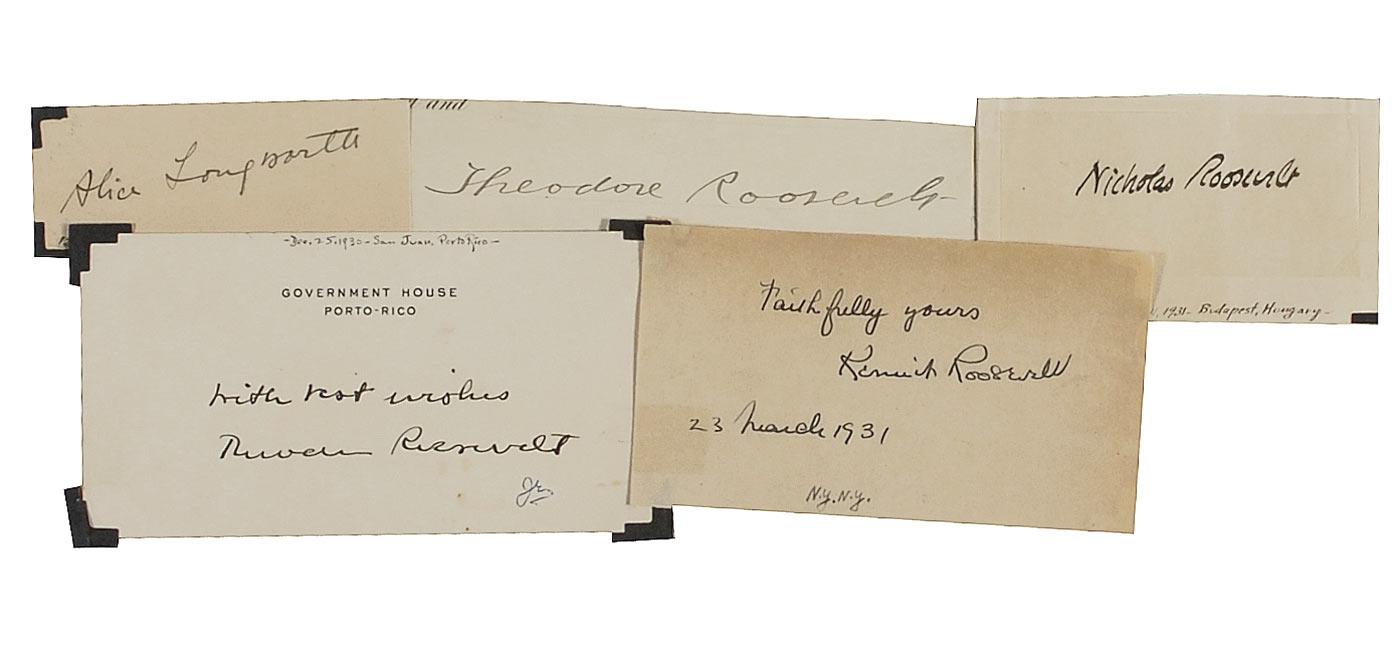 and
Alice Longworth
Theodore Roosevelt
Nicholas Roosevelt
1931 - Budapest, Hungary -
- Dec. 25, 1930 - San Juan, Porto Rico -
GOVERNMENT HOUSE
PORTO-RICO
With best wishes
Theodore Roosevelt
Jr.
Faithfully yours
Kermit Roosevelt
23 March 1931
N.Y. N.Y.